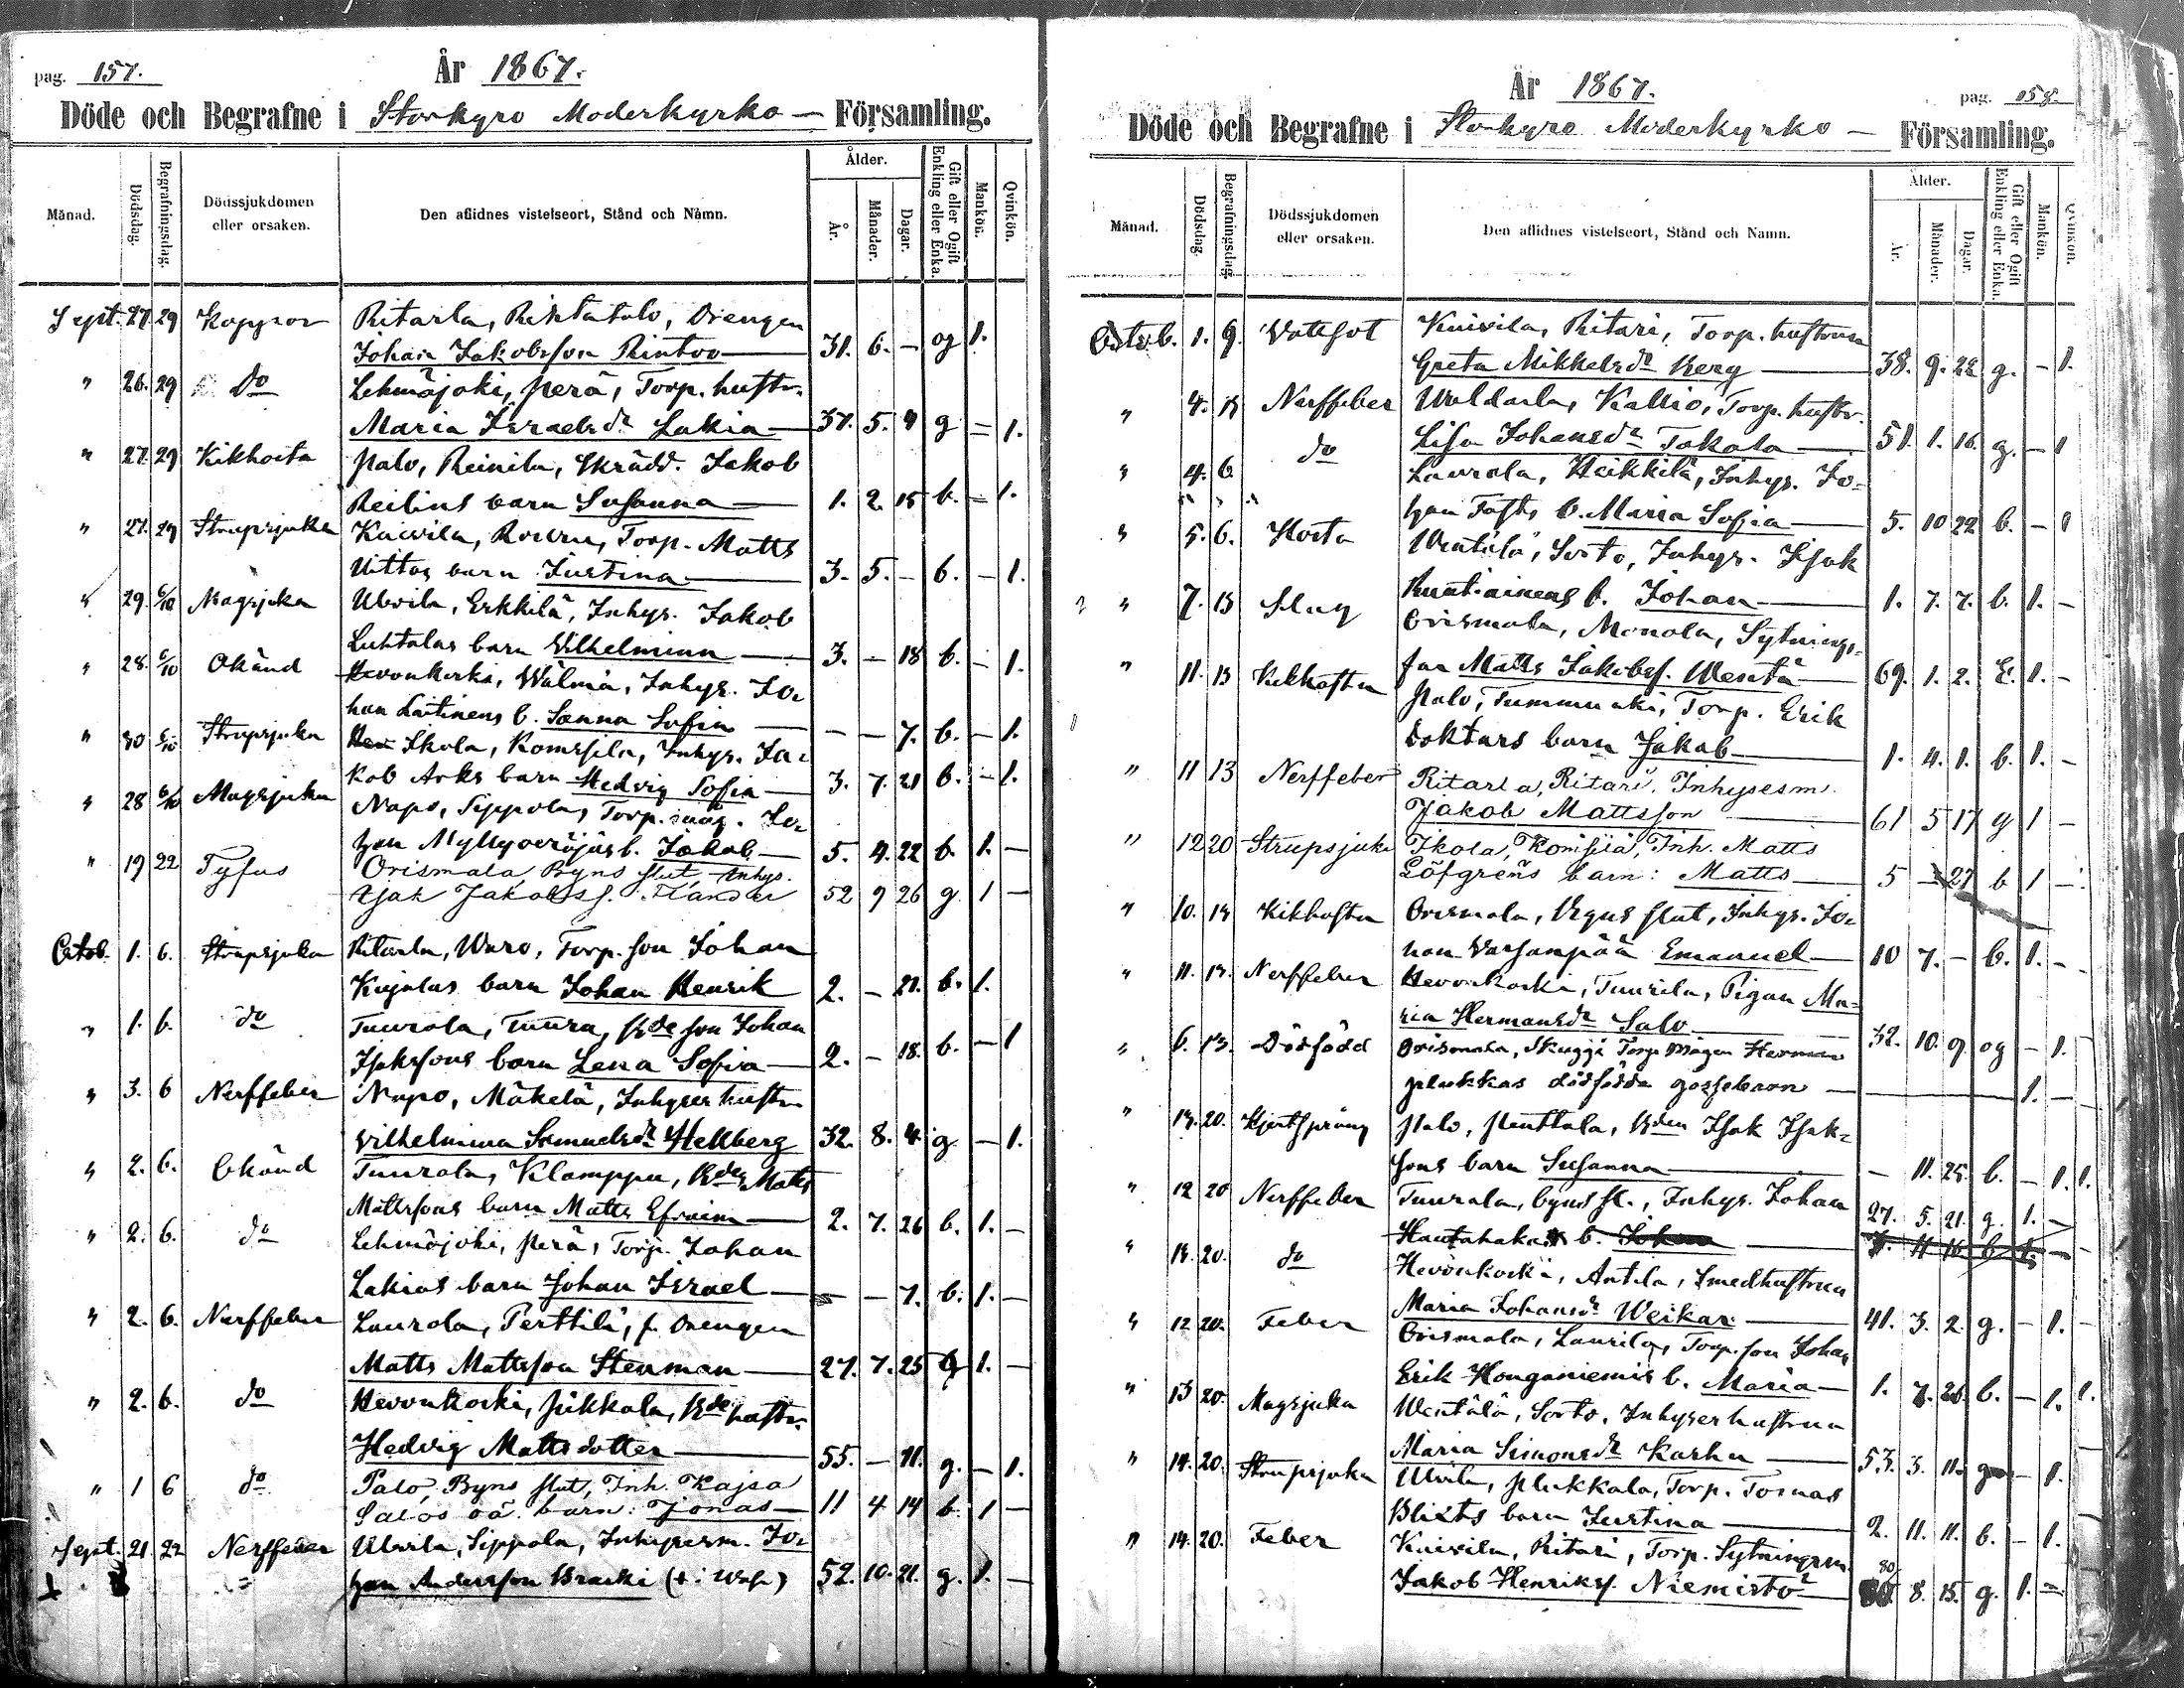 pag. 157.
År 1867.
Döde och Begrafne i Storkyro Moderkyrko — Församling.
Månad.
Dödsdag.
Begrafningsdag.
Dödssjukdomen eller orsaken.
Den aflidnes vistelseort, Stånd och Namn.
Ålder.
År.
Månader.
Dagar.
Gift eller Ogift Enkling eller Enka.
Mankön.
Qvinkön.
Sept. 27. 29 Koppor Ritarla, Drengen
Johan Jakobsson Rintoo — 31. 6. — og 1.
" 26. 29 do Lehmäjoki, Perä, Torp. hustr.
Maria Israelsdr Lakia — 37. 5. 9 g — 1.
" 27. 29 Kikhosta Palo, Reinila, Skrädd. Jakob
Reilins barn Susanna — 1. 2. 15 b. — 1.
" 27. 29 Strupsjuka Kuivila, Torp. Matts
barn Justina — 3. 5. — b. — 1.
" 29. 6/10 Magsjuka Ulvila, Erkkilä, Inhys. Jakob
Luhtalas barn Wilhelmina — 3. — 18 b. — 1.
" 28. 6/10 Okänd Hevonkoski, Wälmä, Inhys. Jo-
han Laitinens b. Sanna Sofia — — — 7. b. — 1.
" 30 6/10 Strupsjuka Ikola, Komsila, Inhys. Ja-
kob Arks barn Hedvig Sofia — 3. 7. 21 b. — 1.
" 28 6/10 Magsjuka Napo, Sippola, Torp. måg. Jo-
han b. Jakob — 5. 4. 22 b. 1. —
" 19 22 Tyfus Orismala Byns slut Inhys.
Isak Jakobss. 52 9 26 g 1 —
Octob. 1. 6. Strupsjuka Ritarla, Waro, Torp. son Johan
Kujalas barn Johan Henrik 2. — 21. b. 1.
" 1. 6. do Tuurala, Tuura, Bde son Johan
Isakssons barn Lena Sofia — 2. — 18. b. — 1
" 3. 6 Nerffeber Napo, Mäkelä, Inhyses hustru
Wilhelmina Samuelsdr Hellberg 32. 8. 4. g. — 1.
" 2. 6. Okänd Tuurala, Klamppu, Bdes Matts
Mattssons barn Matts Efraim — 2. 7. 26 b. 1. —
" 2. 6. do Lehmäjoki, Perä, Torp. Johan
Lakias barn Johan Israel — — — 7. b. 1. —
" 2. 6. Nerffeber Laurola, Perttilä, f. Drengen
Matts Mattsson Stenman — 27. 7. 25 g 1. —
" 2. 6. do Hevonkoski, Pukkala, Bde hustr.
Hedvig Mattsdotter — 55. — 11. g. — 1.
" 1 6 do Palo, Byns slut, Inh. Kajsa
Salos oä. barn: Jonas — 11 4 14 b. 1 —
Sept. 21. 22 Nerffeber Ulvila, Sippola, Inhysesm. Jo-
han Andersson Bracki (+ i Wasa) 52. 10. 21. g. 1. —
År 1867.
pag. 158.
Döde och Begrafne i Storkyro Moderkyrko — Församling.
Månad.
Dödsdag.
Begrafningsdag.
Dödssjukdomen eller orsaken.
Den aflidnes vistelseort, Stånd och Namn.
Ålder.
År.
Månader.
Dagar.
Gift eller Ogift Enkling eller Enka.
Mankön.
Qvinkön.
Octob. 1. 9. Wattsot Kuivila, Ritari, Torp. hustrun
Greta Mikkelsdr Berg — 38. 9. 22 g. — 1.
" 4. Nerffeber Kallio, Torp. hustr.
Lisa Johansdr Takala — 51. 1. 16. g. — 1
" 4. 6 do Laurola, Heikkilä, Inhys. Jo-
han b. Maria Sofia — 5. 10 22 b. — 1
" 5. 6. Hosta Wentälä, Sorto, Inhys. Isak
b. Johan — 1. 7. 7. b. 1. —
" 7. 13 Slag Orismala, Monola, Sytnings-
far Matts Jakobss. Wentä — 69. 1. 2. E. 1. —
" 11. 13 Kikhosta Palo, Tummukki, Torp. Erik
Doktars barn Jakob — 1. 4. 1. b. 1. —
" 11 13 Nerffeber Ritarla, Ritari, Inhysesm.
Jakob Mattsson — 61 5 17 g 1 —
" 12 20 Strupsjuka Ikola, Komsila, Inh. Matts
Löfgrens barn: Matts — 5 — 27 b 1 —
" 10. 13 Kikhosta Orismala, Byns slut, Inhys. Jo-
han Varsanpää Emanuel — 10 7. — b. 1. —
" 11. 13. Nerffeber Hevonkoski, Tuurila, Pigan Ma-
ria Hermansdr Salo — 32. 10. 9 og — 1.
" 6. 13. Dödfödd Orismala, Skuggi Torp. mågen Herman
Plukkas dödfödda gossebarn — 1. —
" 13. 20. Hjertspräng Palo, Penttala, Bden Isak Isak-
sons barn Susanna — — 11. 25. b. — 1. 1.
" 12 20 Nerffeber Tuurala, byns sl., Inhys. Johan
Hautahaka b. Johan 27. 5. 21. g. 1. —
" 13. 20. do Hevonkoski, Antila, Smedhustrun
Maria Johansdr Weikar — 41. 3. 2. g. — 1. —
" 12 20. Feber Orismala, Laurila, Torp. son Johan
Erik Honganiemis b. Maria — 1. 7. 26. b. — 1. 1.
" 13 20. Magsjuka Wentälä, Sorto, Inhyses hustrun
Maria Simonsdr Karhu — 53. 3. 11. g — 1.
" 14. 20. Strupsjuka Ulvila, Plukkala, Torp. Tomas
Blixts barn Justina — 2. 11. 11. b. — 1.
" 14. 20. Feber Kuivila, Ritari, Torp. Sytningsm.
Jakob Henrikss. Niemistö — 80 8. 15. g. 1. —